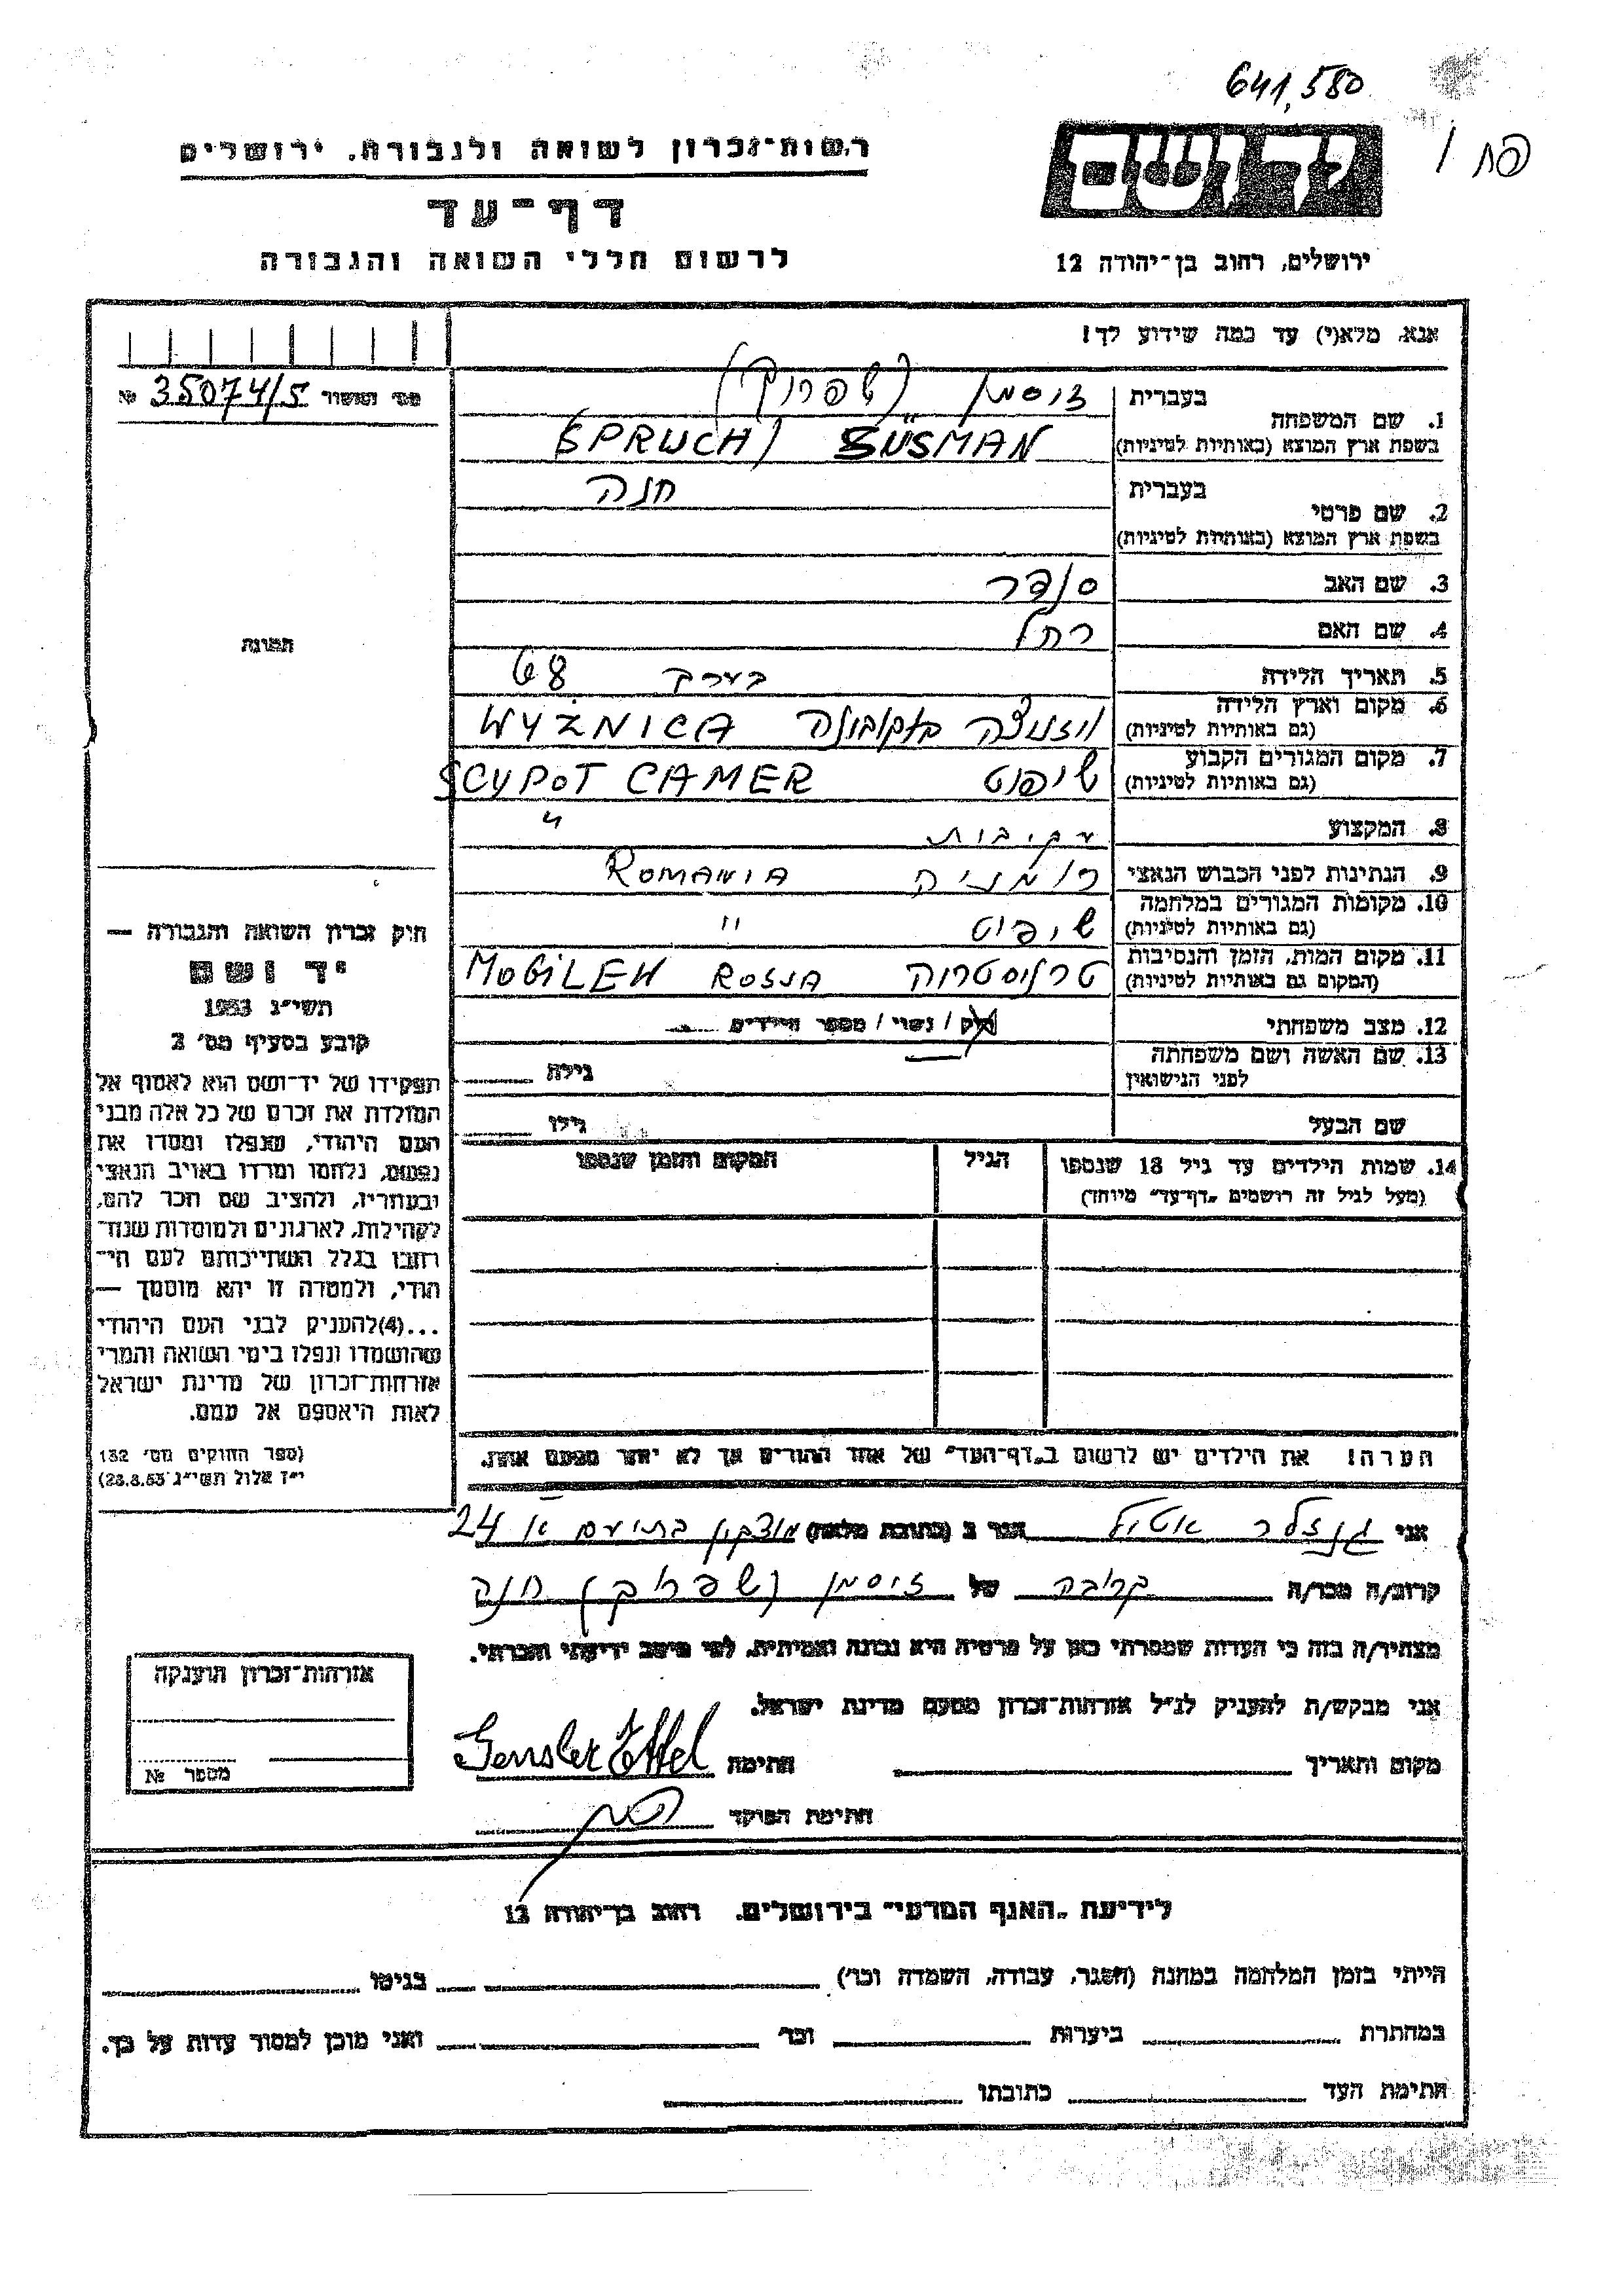 641,580
רשות־זכרון לשואה ולגבורה, ירושלים
דף־עד
לרשום חללי השואה והגבורה
ירושלים, רחוב בן־יהודה 12
אנא, מלא(י) עד כמה שידוע לך!
מס' ושור № 35074/5
1. שם המשפחה
בעברית זוסמן (שפרוך)
בשפת ארץ המוצא (באותיות לטיניות) (SPRUCH) SÜSMAN
2. שם פרטי
בעברית חנה
בשפת ארץ המוצא (באותיות לטיניות)
3. שם האב סנדר
4. שם האם רחל
5. תאריך הלידה בערך 68
6. מקום וארץ הלידה
(גם באותיות לטיניות) WYŻNICA
7. מקום המגורים הקבוע
(גם באותיות לטיניות) שיפוט SCYPOT CAMER
8. המקצוע "
9. הנתינות לפני הכבוש הנאצי רומניה ROMANIA
10. מקומות המגורים במלחמה
(גם באותיות לטיניות) שיפוט "
11. מקום המות, הזמן והנסיבות
(המקום גם באותיות לטיניות) MOGILEW ROSJA
12. מצב משפחתי רוק / נשוי / מספר הילדים
13. שם האשה ושם משפחתה
לפני הנישואין גילה
שם הבעל גילו
14. שמות הילדים עד גיל 18 שנספו הגיל המקום והזמן שנספו
(מעל לגיל זה רושמים „דף־עד" מיוחד)
תמונה
חוק זכרון השואה והגבורה —
יד ושם
תשי"ג 1953
קובע בסעיף מס' 2
תפקידו של יד־ושם הוא לאסוף אל
המולדת את זכרם של כל אלה מבני
העם היהודי, שנפלו ומסרו את
נפשם, נלחמו ומרדו באויב הנאצי
ובעוזריו, ולהציב שם וזכר להם,
לקהילות, לארגונים ולמוסדות שנח־
רבו בגלל השתייכותם לעם הי־
הודי, ולמטרה זו יהא מוסמך —
...(4)להעניק לבני העם היהודי
שהושמדו ונפלו בימי השואה והמרי
אזרחות־זכרון של מדינת ישראל
לאות היאספם אל עמם.
(ספר החוקים מס' 132
י"ז אלול תשי"ג 28.8.53)
הערה! את הילדים יש לרשום ב„דף־העד" של אחד ההורים אך לא יותר מפעם אחת.
אני גנזלר אטול הגר ב (כתובת מלאה) 24
קרוב/ה מכר/ה קרובה של זוסמן (שפרוך) חנה
מצהיר/ה בזה כי העדות שמסרתי כאן על פרטיה היא נכונה ואמיתית, לפי מיטב ידיעתי והכרתי.
אני מבקש/ת להעניק לנ"ל אזרחות־זכרון מטעם מדינת ישראל.
מקום ותאריך חתימה Gensler Ettel
חתימת הפוקד
אזרחות־זכרון הוענקה
מספר №
לידיעת „האגף המדעי" בירושלים, רחוב בן־יהודה 12
הייתי בזמן המלחמה במחנה (הסגר, עבודה, השמדה וכו') בגיטו
במחתרת ביערות וכו' ואני מוכן למסור עדות על כך.
חתימת העד כתובתו